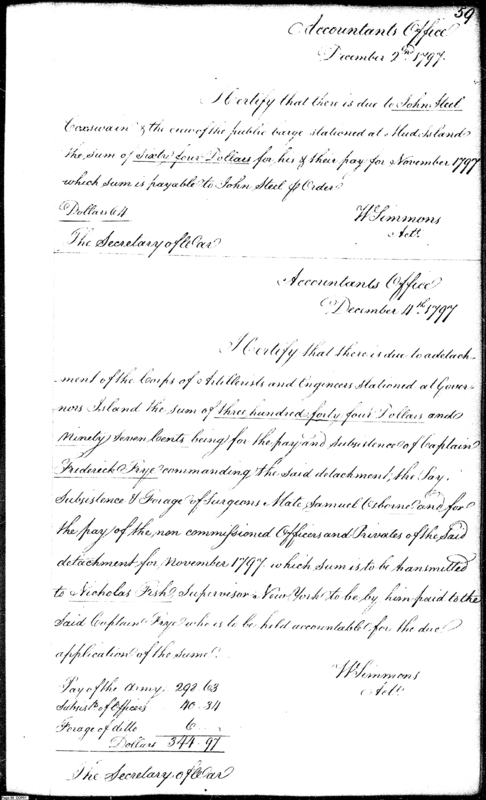 59
Accountants Office
December 2nd 1797.
I Certify that there is due to John Steel
Coxswain & the crew of the public barge stationed at Mud Island
the sum of Sixty four Dollars for his & their pay for November 1797
which sum is payable to John Steel or Order
Dollars 64
W Simmons
Actt
The Secretary of War
Accountants Office
December 4th 1797
I Certify that there is due to a detach-
-ment of the Corps of Artillerists and Engineers stationed at Gover-
nors Island the sum of three hundred forty four Dollars and
Ninety Seven Cents being for the pay and subsistence of Captain
Frederick Frye commanding the said detachment, the Pay,
Subsistence & Forage of Surgeons Mate Samuel Osborne and for
the pay of the non commissioned Officers and Privates of the Said
detachment for November 1797 which sum is to be transmitted
to Nicholas Fish Supervisor New York to be by him paid to the
Said Captain Frye who is to be held accountable for the due
application of the same.
W Simmons
Actt
Pay of the Army 298 63
Subsistce of Officers 40 34
Forage of ditto 6
Dollars 344 97
The Secretary of War